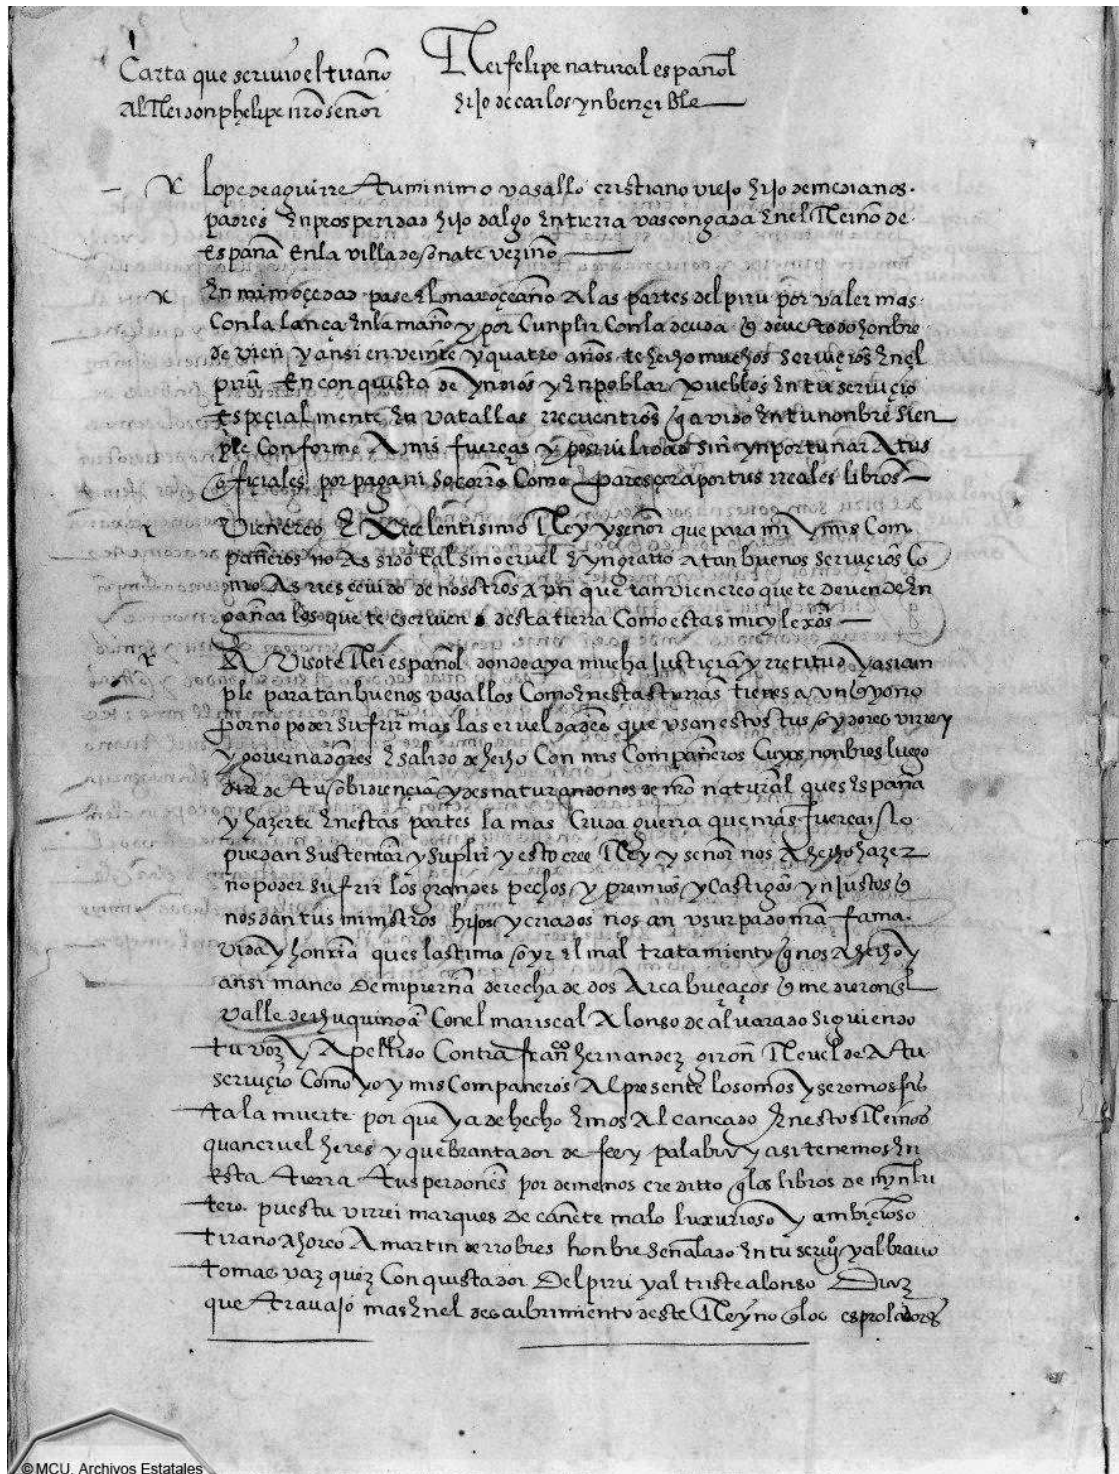 Carta que scrivio el tirano
Al Rei don phelipe nr̄o señor
Rei felipe natural español
hijo de carlos ynbençible
x lope de aguirre tu minimo vasallo cristiano viejo hijo de medianos
padres En prosperidad hijo dalgo En tierra vascongada En el Reino de
España En la villa de oñate vezino
x En mi moçedad pase El mar oçeano A las partes del piru por valer mas
Con la lança En la mano y por Cunplir Con la deuda q̄ deve todo honbre
de vien y ansi en veinte y quatro años te hecho muchos serviçios En el
piru En conquista de yndios y En poblar pueblos En tu serviçio
Espeçialmente En vatallas rrecuentros q̄ a vido En tu nonbre sien
pre Conforme A mis fuerças y posivilidad sin ynportunar A tus
ofiçiales por paga ni socorro Como pareçera por tus rreales libros
x vien creo Exçelentisimo Rey y señor que para mi y mis Com
pañeros no As sido tal sino cruel E yngratto a tan buenos serviçios Co
mo As rresçevido de nosotros Avnque tan vien creo que te deven de En
gañar los que te escriven desta tierra Como estas muy lexos
x A Visote Rei español donde aya mucha Justiçia y rretitud
ple para tan buenos vasallos Como En estas tierras tienes a vnq̄ yo no
por no poder sufrir mas las crueldades que vsan estos tus oydores virrey
y governadores E salido de hecho Con mis Compañeros Cuyos nonbres luego
dire de tu obidiençia y desnaturandonos de nr̄o natural ques España
y hazerte En estas partes la mas Cruda guerra que nr̄as fuerças lo
puedan sustentar y suplir y esto cree Rey y señor nos A hecho hazer
no poder sufrir los grandes pechos y premios y Castigos ynJustos q̄
nos dan tus ministros hijos y criados nos an vsurpado nr̄a fama
vida y honrra ques lastima oyr El mal tratamiento q̄ nos A hecho y
ansi manco De mi pierna derecha de dos Arcabuçaços q̄ me dieron El
valle de chuquinga Con el mariscal Alonso de alvarado siguiendo
tu voz y Apellido Contra fran.co hernandez giron Revelde A tu
serviçio Como yo y mis Compañeros Al presente lo somos y seremos fas
ta la muerte por que ya de hecho Emos Alcançado En estos Reinos
quan cruel heres y quebrantador de fee y palabra y asi tenemos En
Esta tierra tus perdones por de menos creditto q̄ los libros de myn lu
tero pues tu virrei marques de cañete malo luxurioso y ambiçioso
tirano Ahorco A martin de rrobres honbre señalado En tu serviº y al bravo
tomas vazquez Conquistador Del piru y al triste alonso Diaz
que travajo mas En el descubrimiento deste Reyno q̄ los esploladores
©MCU. Archivos Estatales